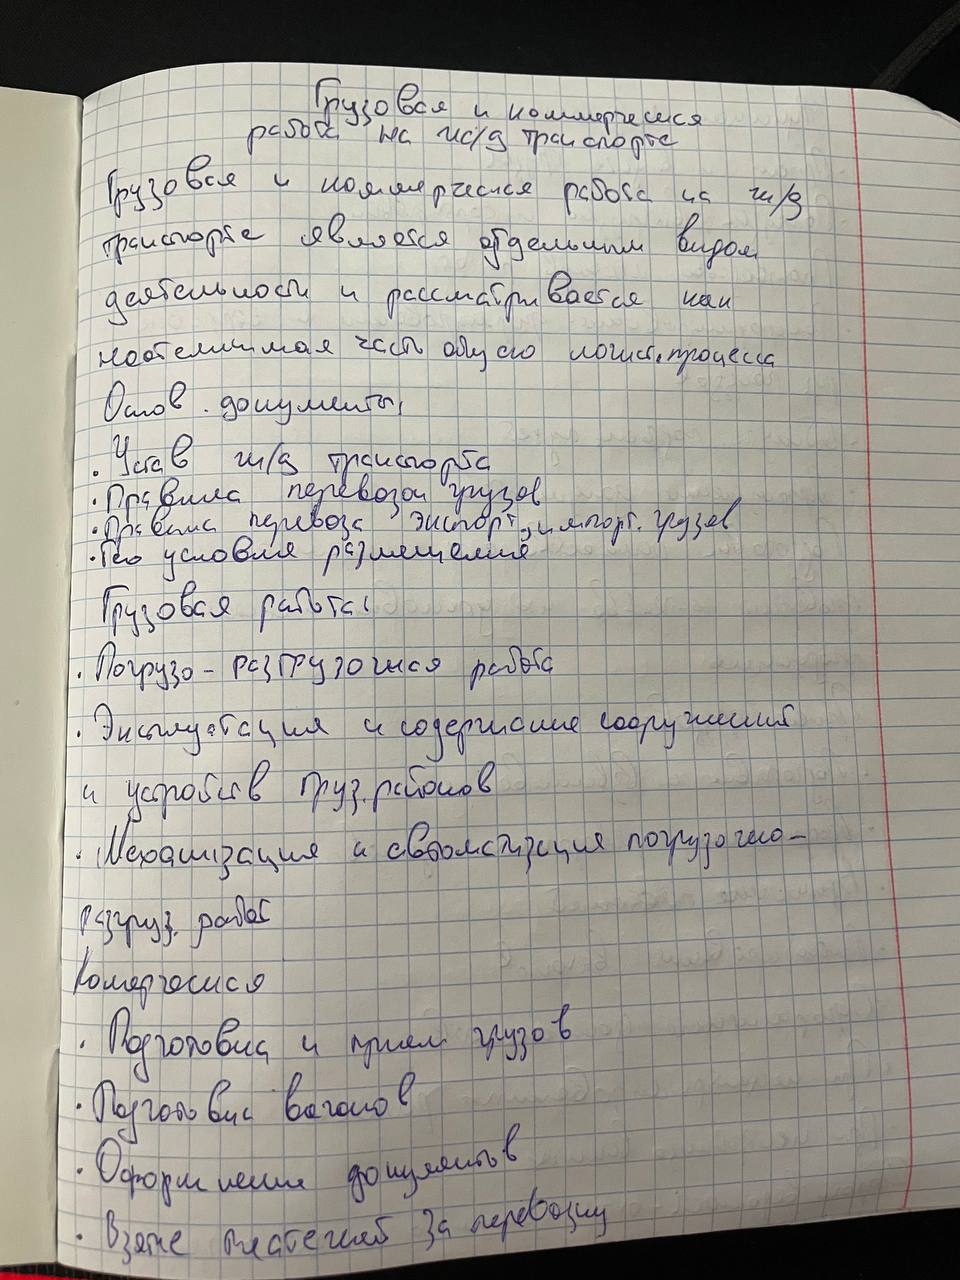 Грузовая и коммерческая
работа на ж/д транспорте
Грузовая и коммерческая работа на ж/д
транспорте является отдельным видом
деятельности и рассматривается как
неотемлимая часть общего логист. процесса
Основ. документы:
· Устав ж/д транспорта
· Правила перевозок грузов
· Правила перевоза экспорт, импорт. грузов
· Тех условия размещения
Грузовая работа:
· Погрузо-разгрузочная работа
· Эксплуатация и содержание сооружений
и устройств груз. районов
· Механизация и автоматизация погрузочно-
разгруз. работ
Комерческая
· Подготовка и прием грузов
· Подготовка вагонов
· Оформление документов
· Взятие платежей за перевозку